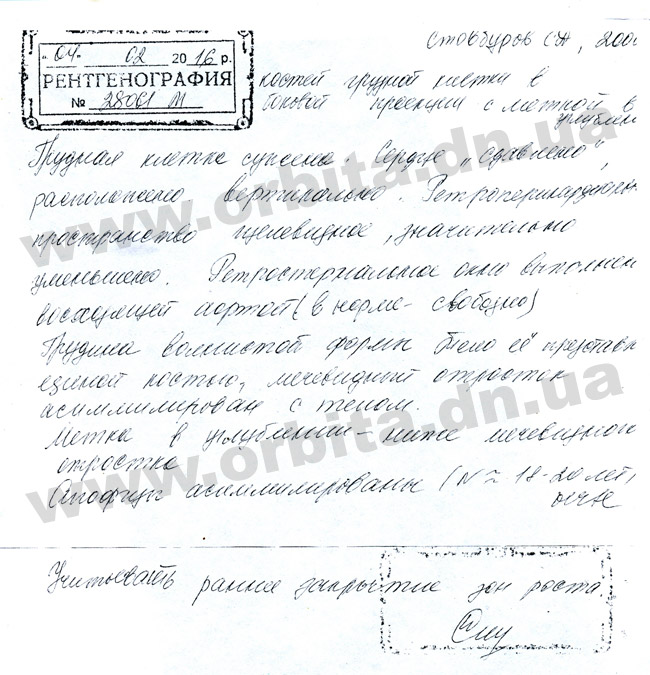 Стовбуров СА, 200
"04" 02 2016 р.
РЕНТГЕНОГРАФИЯ
№ 28061 М
костей грудной клетки в
боковой проекции с меткой в
углублен
Грудная клетка сужена. Сердце „сдавлено",
расположено вертикально. Ретроперикардиальн
пространство щелевидное, значительно
уменьшено. Ретростернальное окно выполнен
восходящей аортой (в норме - свободно)
Грудина волнистой формы Тело её представл
единой костью, мечевидный отросток
асиммилирован с телом.
Метка в углублении - ниже мечевидного
отростка
Апофизы асиммилированы (N ≈ 18-20 лет,
Учитывать раннее закрытие зон роста.
www.orbita.dn.ua
www.orbita.dn.ua